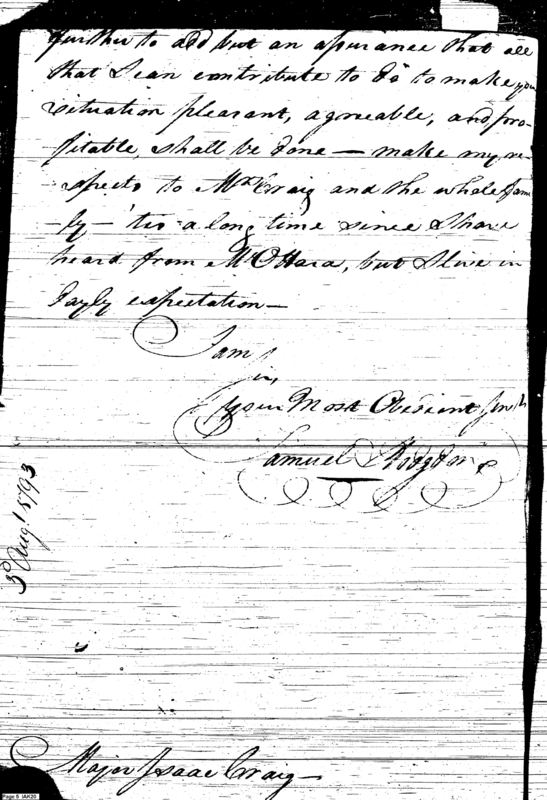 further to add but an assurance that all
that I can contribute to do to make your
situation pleasant, agreeable, and pro-
fitable, shall be done — make my re-
spects to Mrs Craig and the whole fam
-ly — 'tis a long time since I have
heard from Mr OHara, but I live in
dayly expectation —
I am
Sir,
your Most Obedient Servt
Samuel Hodgdon
3d Augt 1793
Major Isaac Craig —
Page 5 IAK20